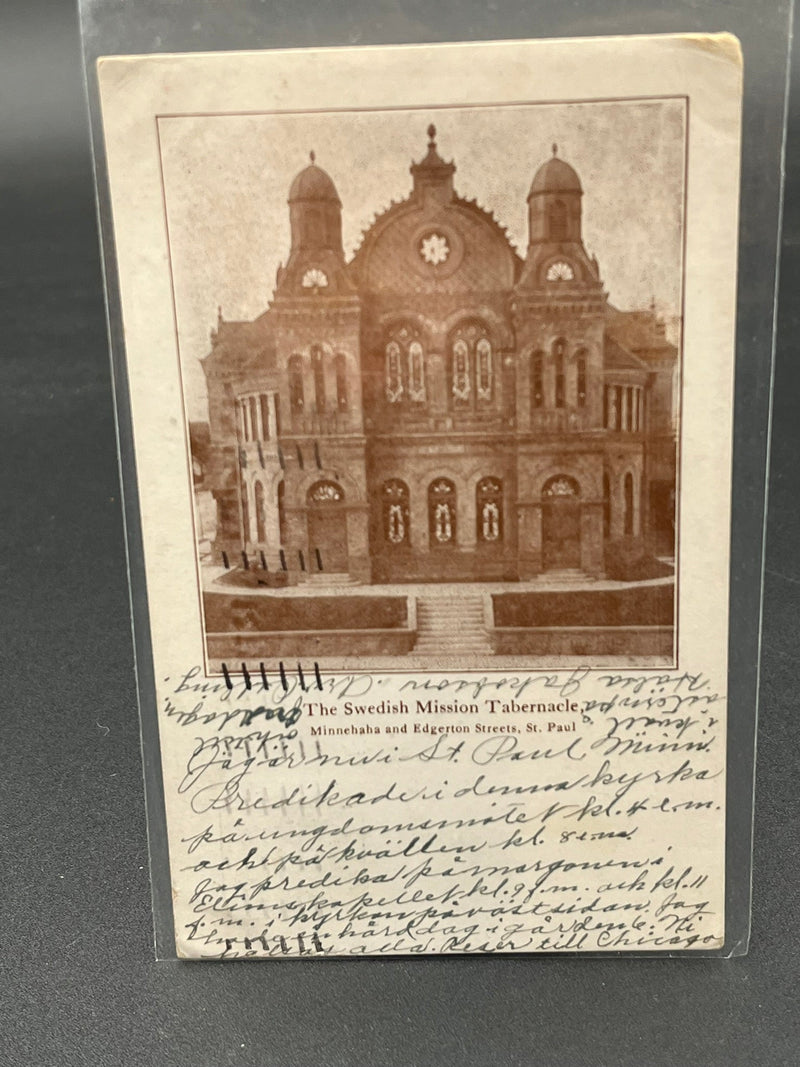 The Swedish Mission Tabernacle,
Minnehaha and Edgerton Streets, St. Paul
Jag är nu i St. Paul Minn.
Predikade i denna kyrka
på ungdomsmötet kl. 4 e.m.
och på kvällen kl. 8 e.m.
Jag predika på morgonen i
Elims kapellet kl. 9 f.m. och kl. 11
f.m. i kyrkan på västsidan. Jag
hård dag i går den 6. Ni
alla. Reser till Chicago
i kväll
Hälsa Jakobson